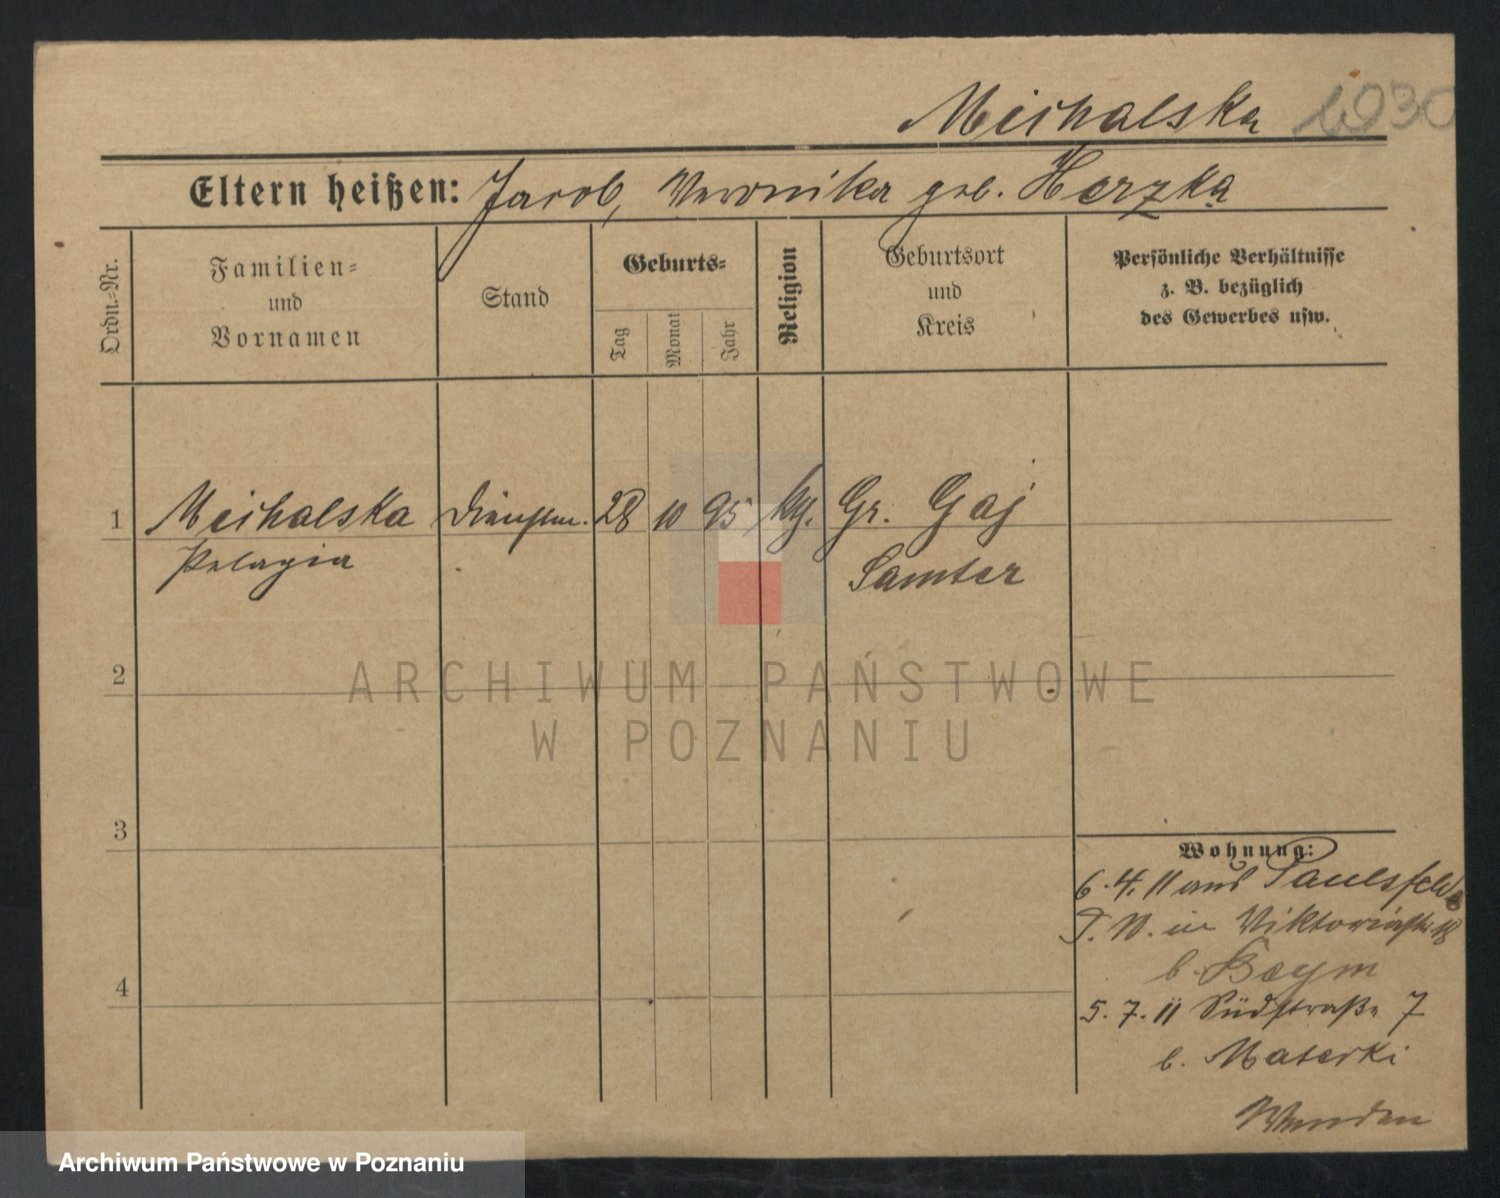 Michalska 1930
Eltern heißen: Jacob, Veronika geb. Herzka
Ordn.=Nr.
Familien=
und
Vornamen
Stand
Geburts=
Tag
Monat
Jahr
Religion
Geburtsort
und
Kreis
Persönliche Verhältnisse
z. B. bezüglich
des Gewerbes usw.
1 Michalska Dienstm. 28 10 95 kg. Gr. Gaj
Pelagia Samter
2
3
4
ARCHIWUM PAŃSTWOWE
W POZNANIU
Wohnung:
6.4.11 aus Paulsfeld
P. W. in Viktoriastr 18
b. Beym
5.7.11 Südstraße 7
b. Materki
Wenden
Archiwum Państwowe w Poznaniu